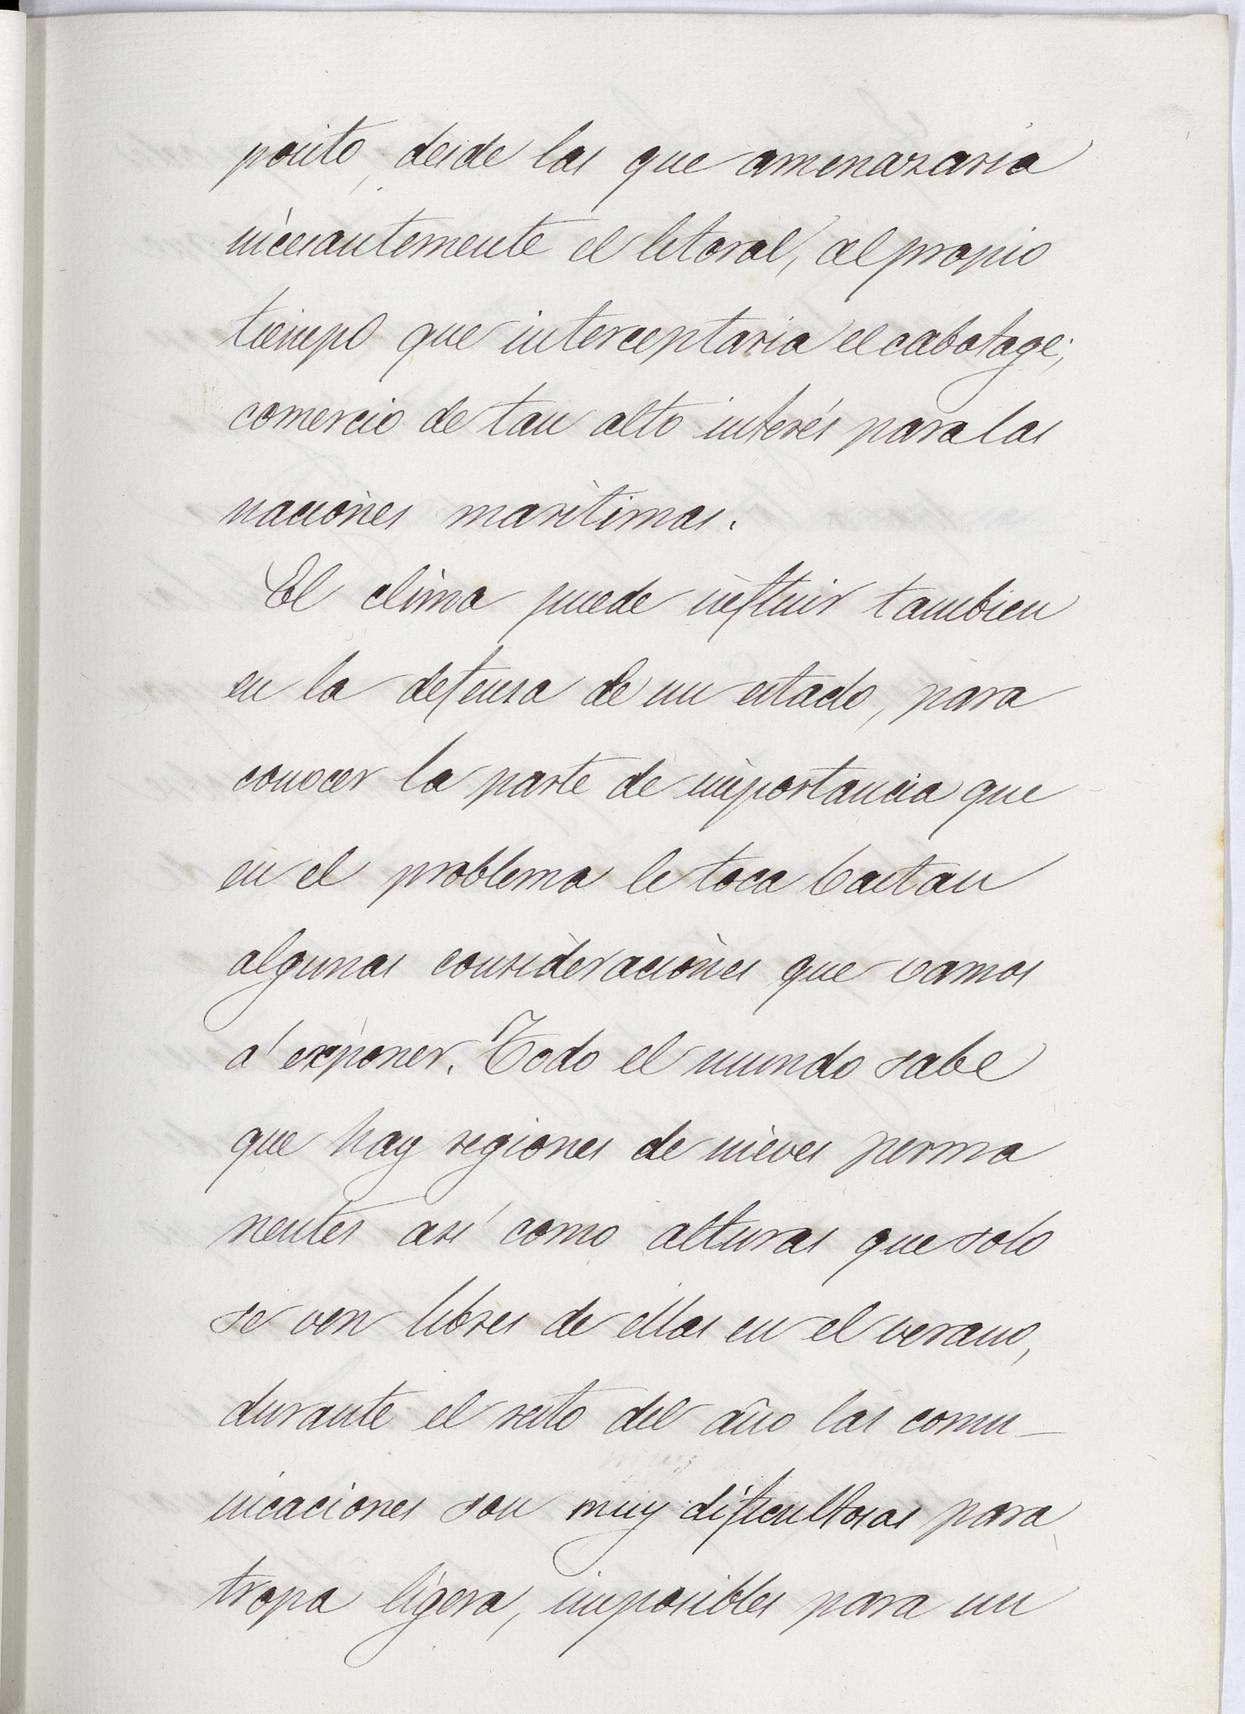 posito, desde las que amenazaria
incesantemente el litoral, al propio
tiempo que interceptaria el cabotage;
comercio de tan alto interés para las
naciones maritimas.
El clima puede influir tambien
en la defensa de un estado, para
conocer la parte de importancia que
en el problema le toca bastan
algunas consideraciones que vamos
á exponer. Todo el mundo sabe
que hay regiones de nieves perma
nentes así como alturas que solo
se ven libres de ellas en el verano,
durante el resto del año las comu-
nicaciones son muy dificultosas para
tropa ligera, imposibles para un